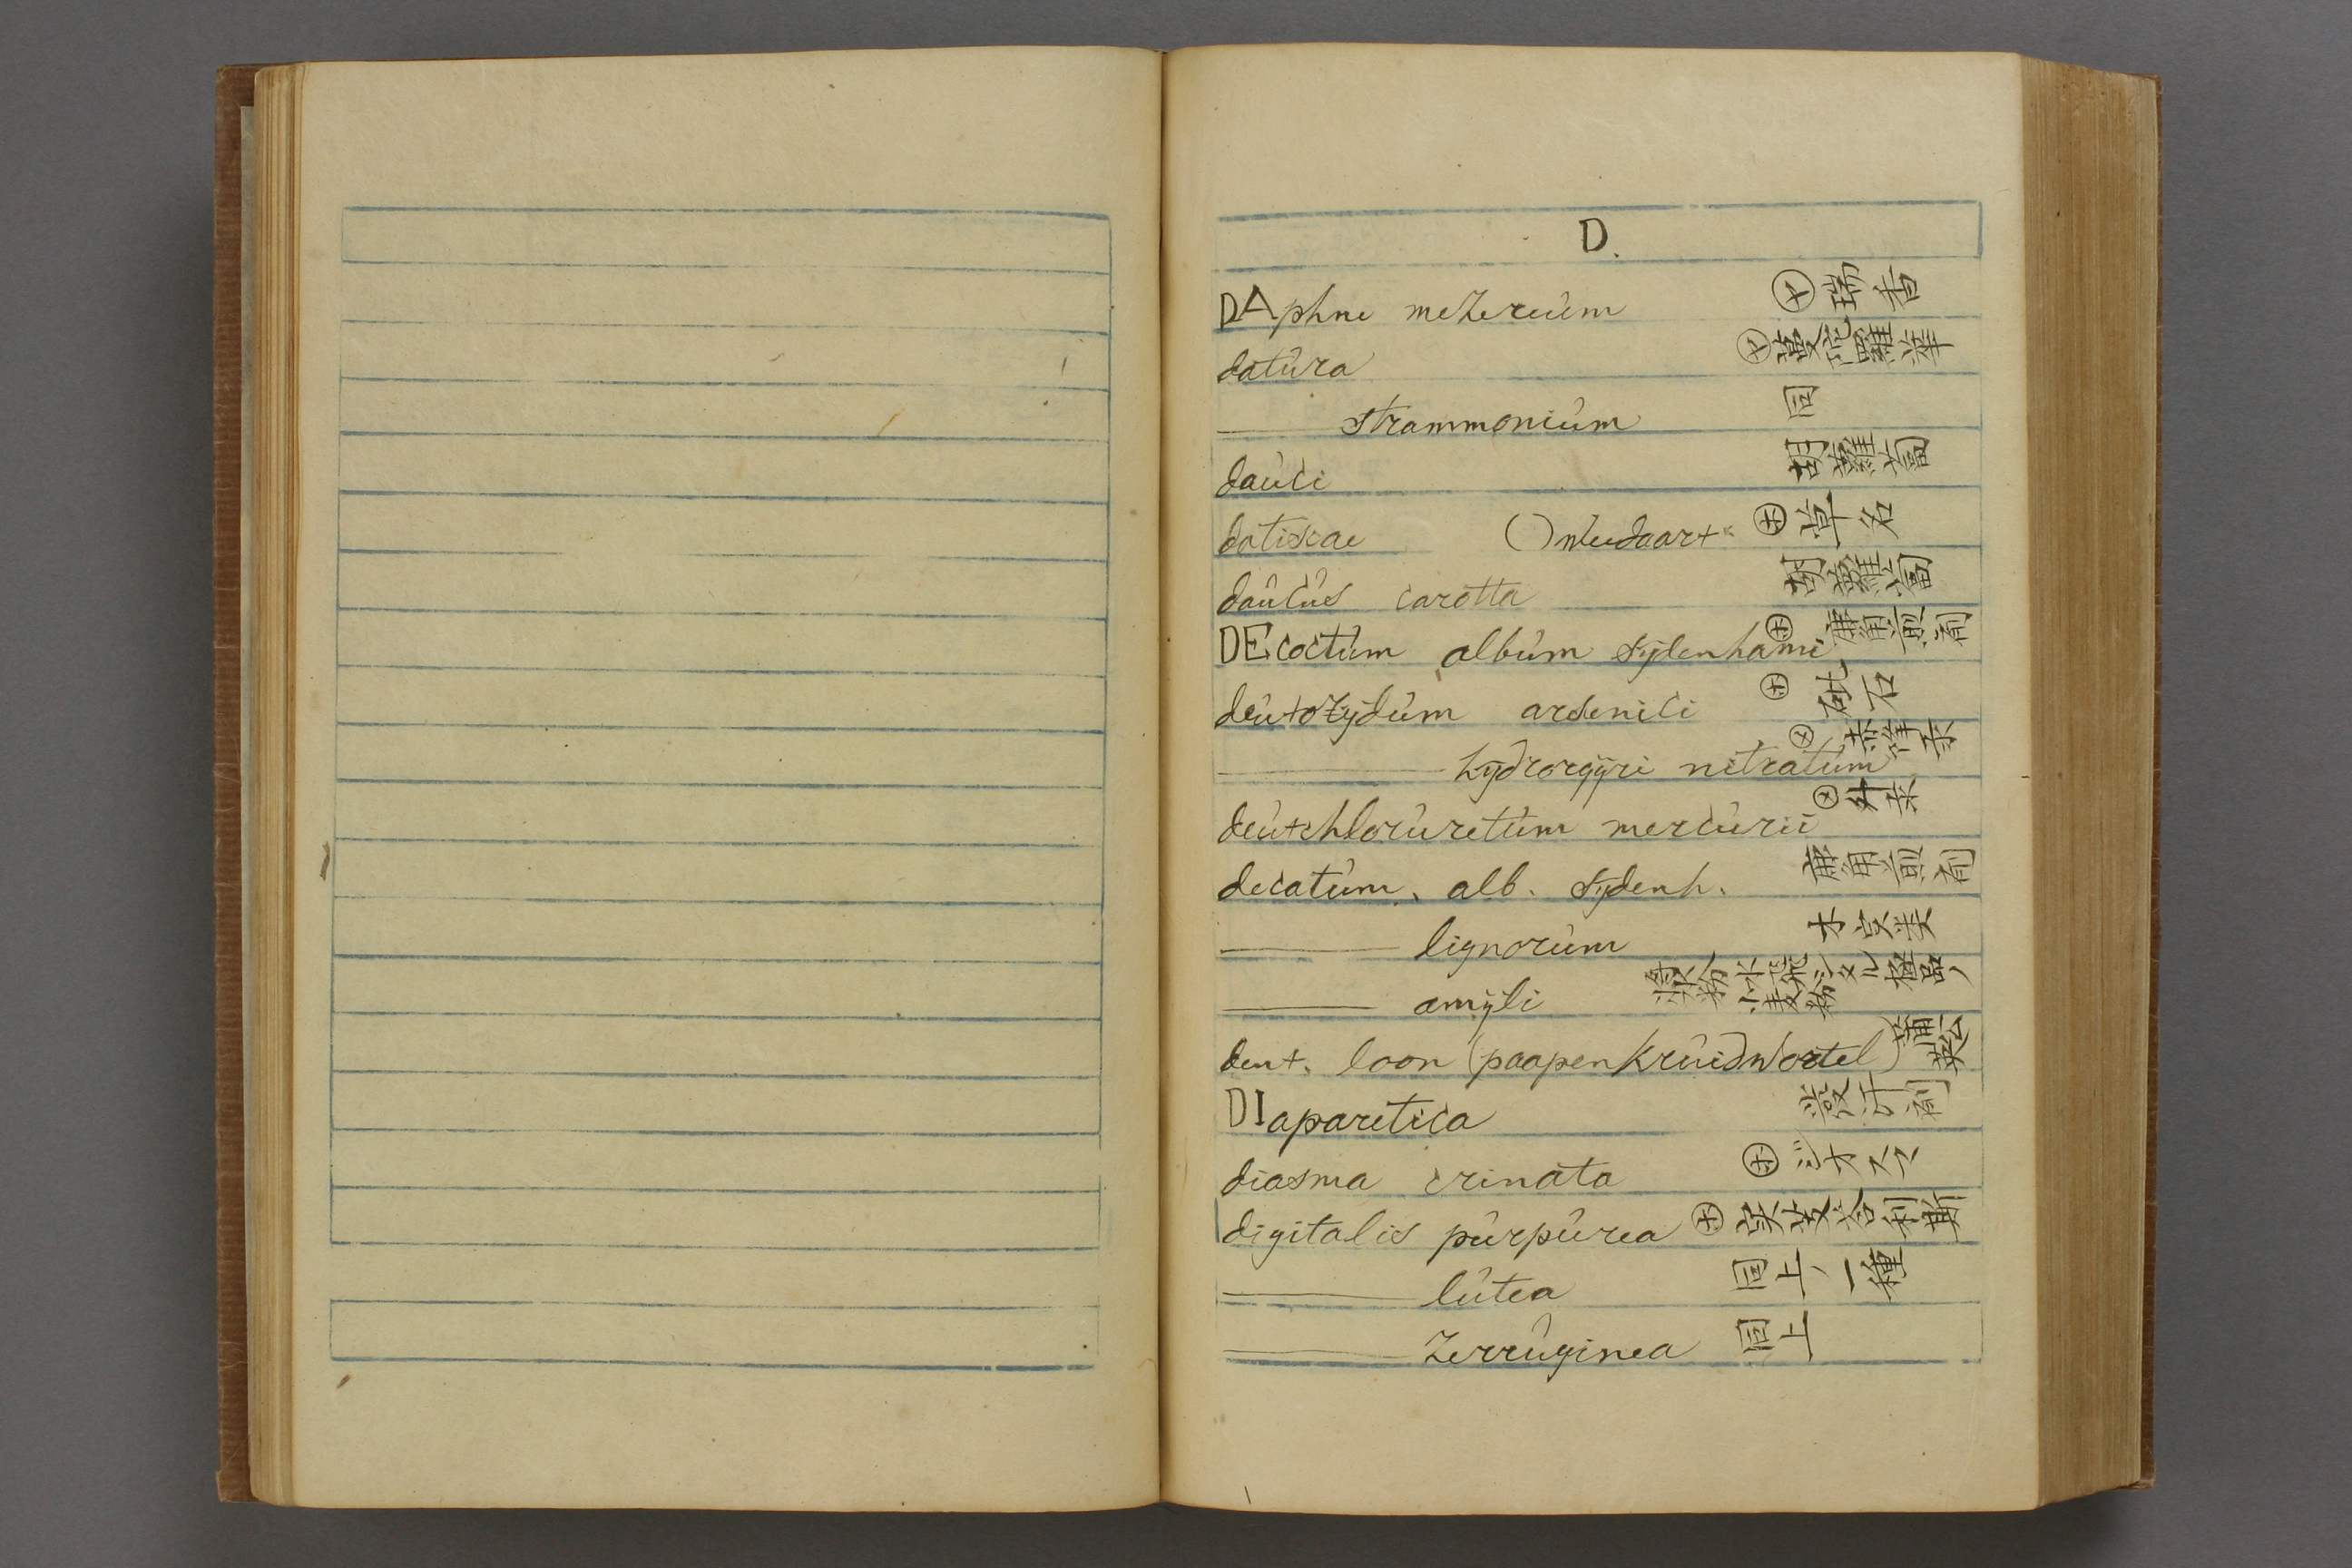 D.
DAphne mezereum ㋳ 瑞香
datura ㋳ 蔓陀羅華
—— strammonium 同
dauci 胡蘿蔔
datiscae ㋭ 草名
daucus carotta 胡蘿蔔
DEcoctum album sydenhami ㋭ 鹿角煎剤
deutoxydum arsenici ㋭ 砒石
—— hydrorgyri nitratum ㋱ 赤降汞
deutchloruretum mercurii ㋱ 升汞
decatum. alb. sydenh. 鹿角煎剤
—— lignorum 木煎
—— amyli 漿粉 小麦粉 水飛シタル極品ノ
dent. loon (paapenkruidwortel) 蒲公英
DIaparetica 発汗剤
diasma crinata ㋭ ジオスマ
digitalis purpurea ㋭ 実芰答利斯
—— lutea 同上ノ一種
—— Zerruginea 同上